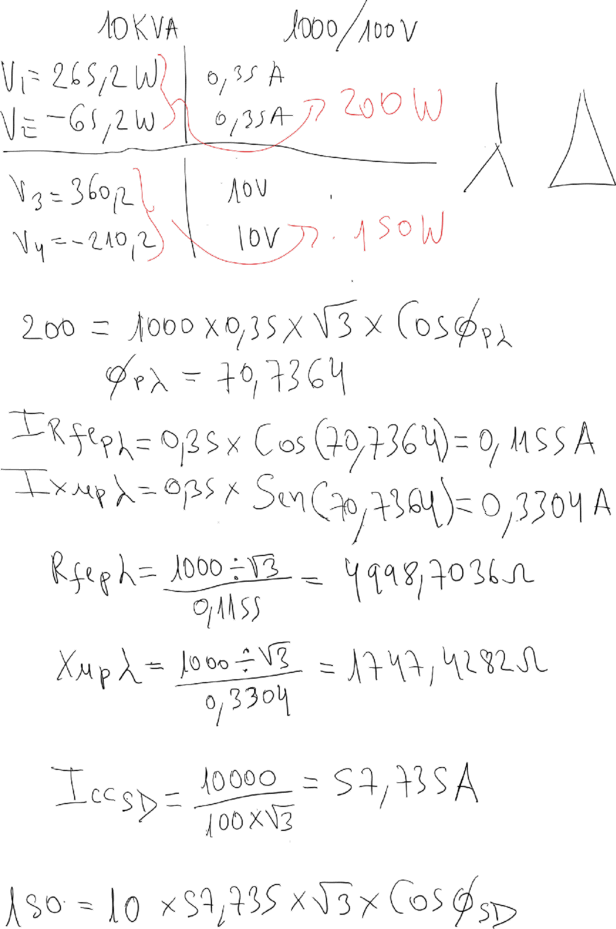 10KVA 1000/100V
V1=265,2W 0,35 A
V2=-65,2W 0,35A 200W
V3=360,2 10V
V4=-210,2 10V 150W
200 = 1000×0,35×√3×Cosϕpλ
ϕpλ = 70,7364
IRfepλ=0,35×Cos(70,7364)=0,1155A
Ixμpλ=0,35×Sen(70,7364)=0,3304A
Rfepλ=1000÷√3/0,1155=4998,7036Ω
Xμpλ=1000÷√3/0,3304=1747,4282Ω
IccSD=10000/100×√3=57,735A
150=10×57,735×√3×CosϕSD